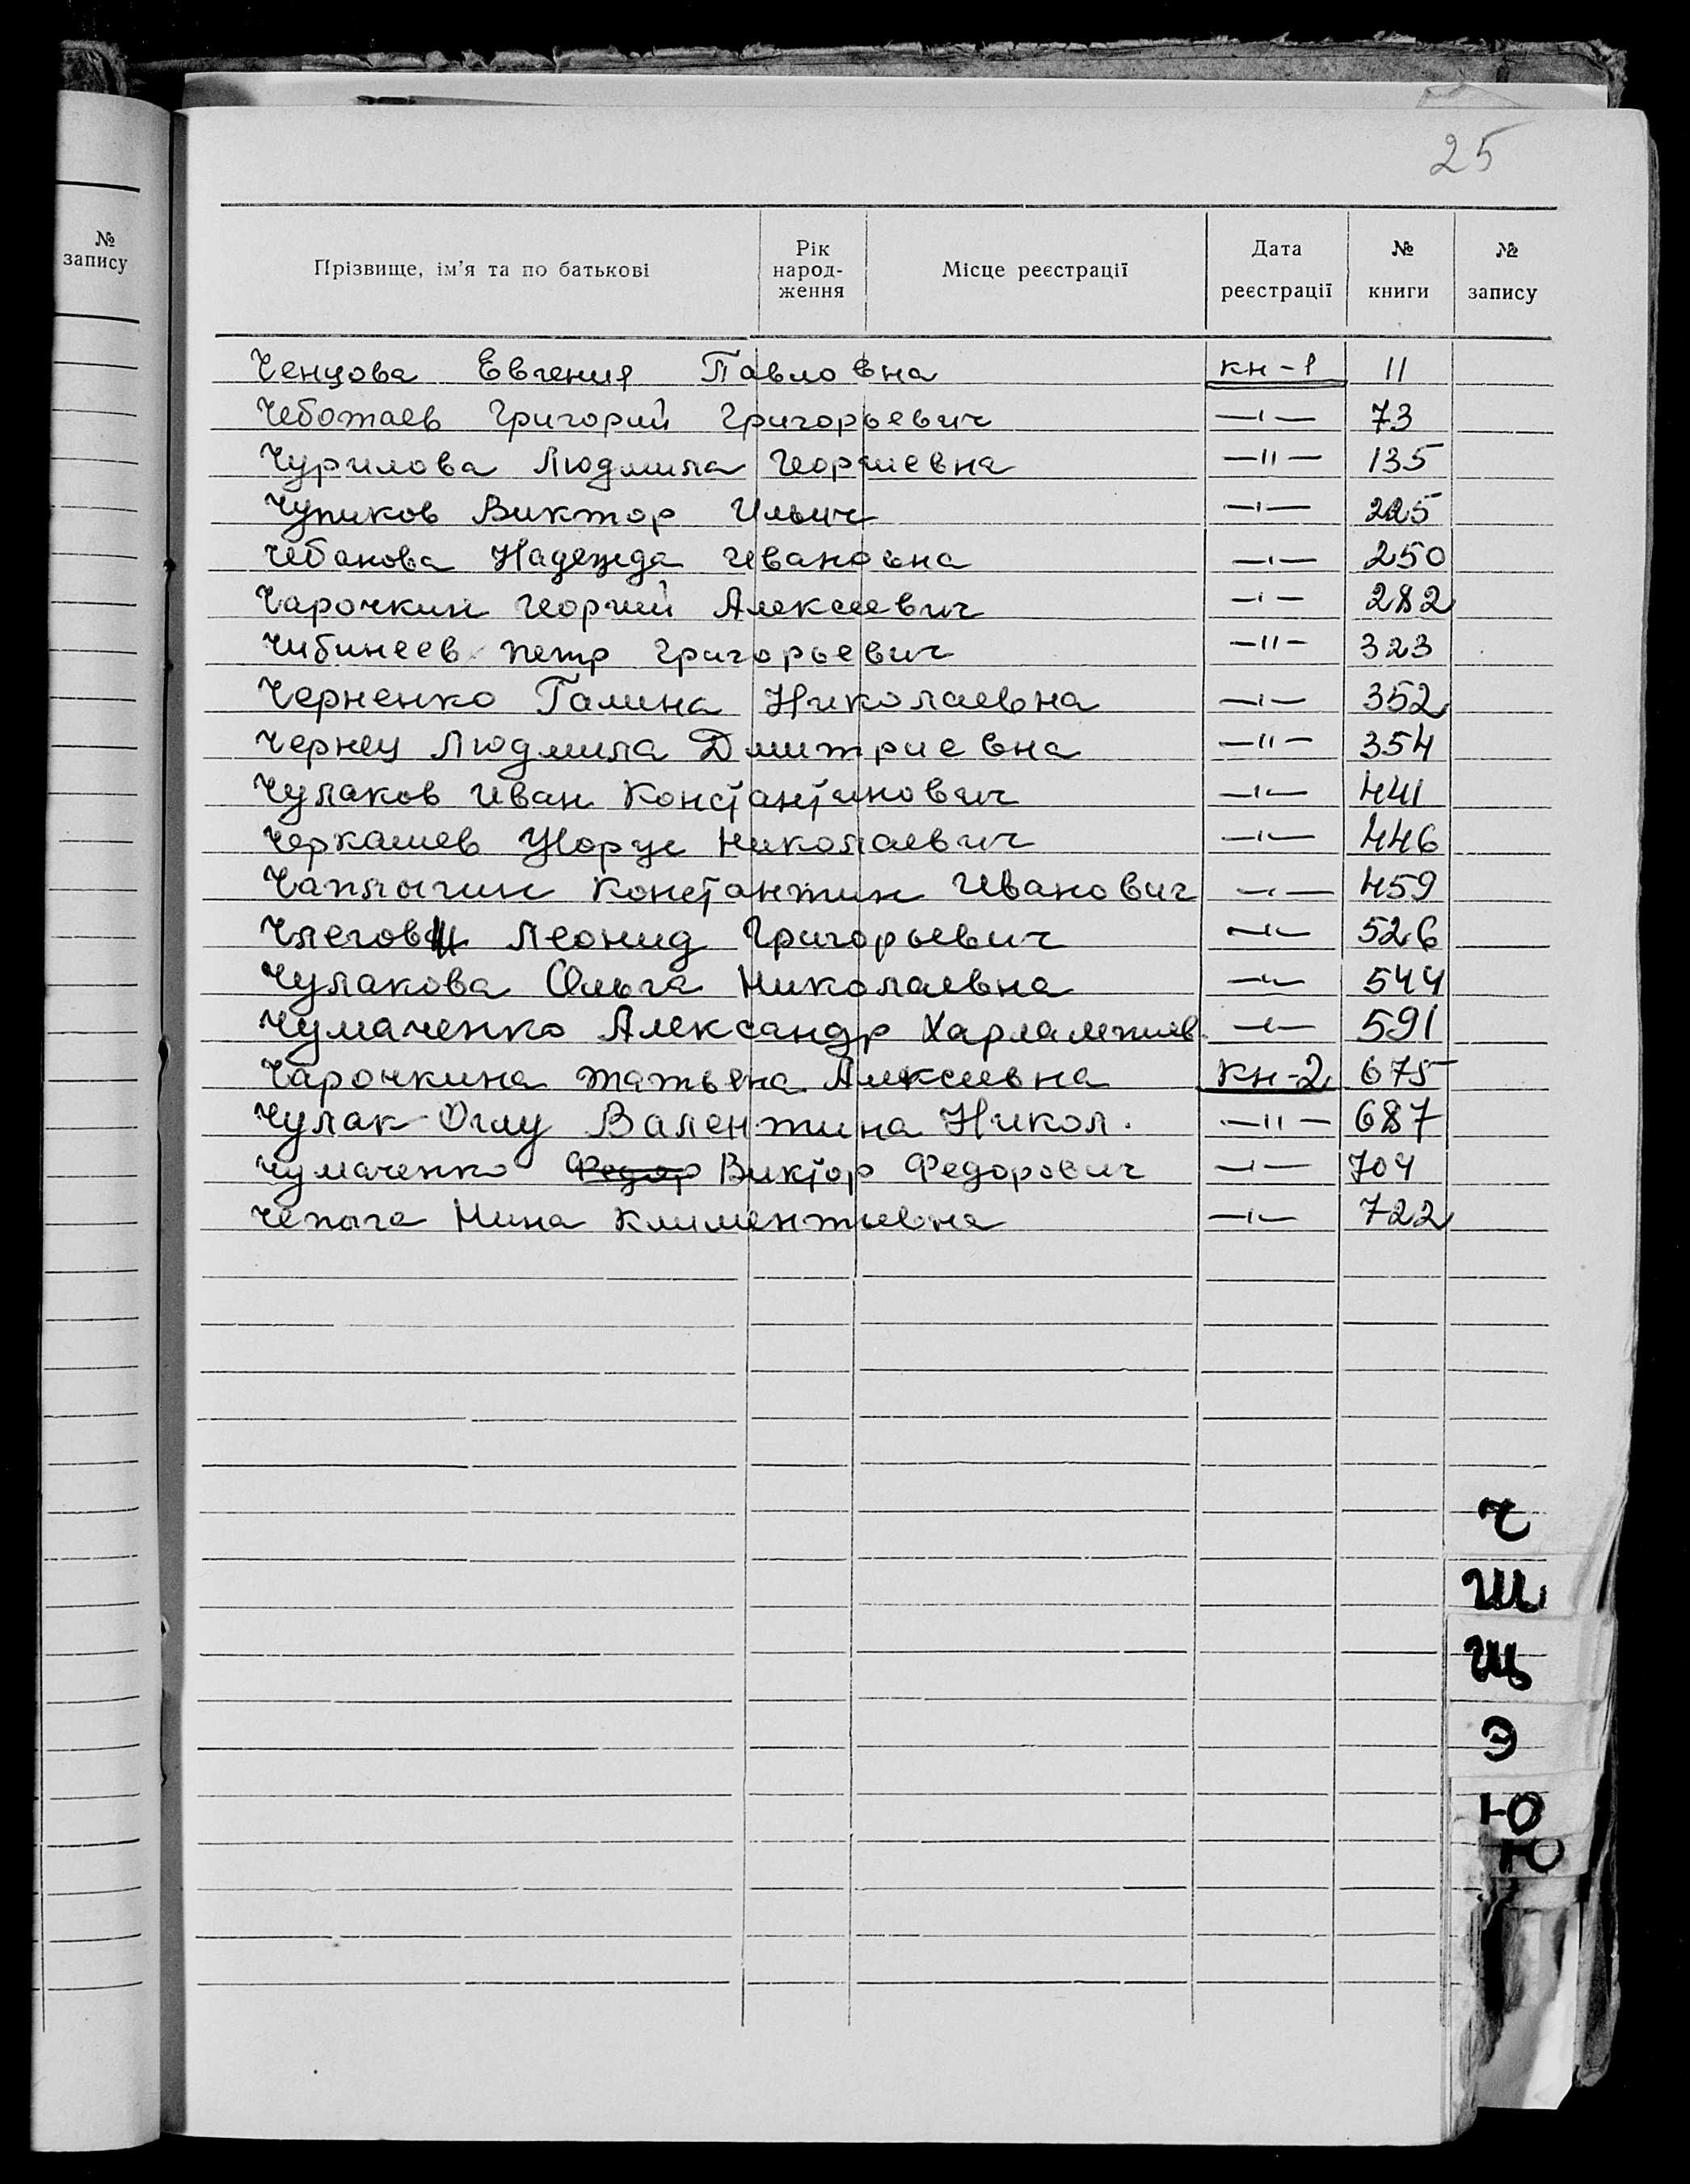 25
№ запису
Прізвище, ім'я та по батькові Рік народ- ження Місце реєстрації Дата реєстрації № книги № запису
Ченцова Евгения Павловна кн-1 11
Чеботаев Григорий Григорьевич —"— 73
Чурилова Людмила Георгиевна —"— 135
Чупиков Виктор Ильич —"— 225
Чебанова Надежда Ивановна —"— 250
Чарочкин Георгий Алексеевич —"— 282
Чибинеев Петр Григорьевич —"— 323
Черненко Галина Николаевна —"— 352
Чернец Людмила Дмитриевна —"— 354
Чулаков Иван Константинович —"— 441
Черкашев Жорже Николаевич —"— 446
Чаплыгин Константин Иванович —"— 459
Леонид Григорьевич —"— 526
Чулакова Ольга Николаевна —"— 544
Чумаченко Александр Харлампиев. —"— 591
Чарочкина Татьяна Алексеевна кн-2 675
Чулак-Оглу Валентина Никол. —"— 687
Чумаченко Федор Виктор Федорович —"— 704
Чепыга Нина Климентьевна —"— 722
Ч
Ш
Щ
Э
Ю
Ю